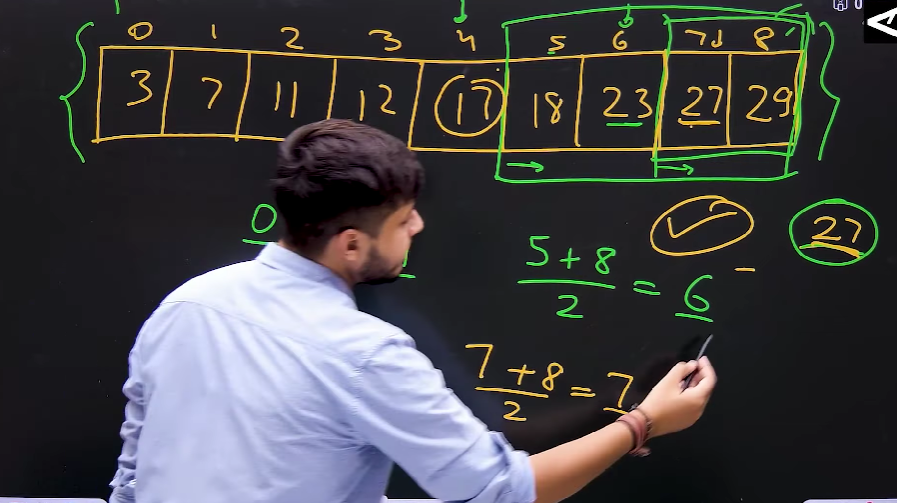 0 1 2 3 4 5 6 7 8
3 7 11 12 17 18 23 27 29
0
27
5+8/2 = 6
7+8/2 = 7